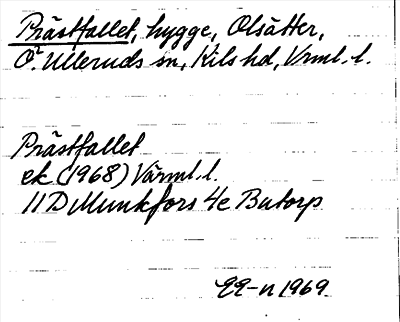 Prästfallet, hygge, Olsätter,
Ö. Ulleruds sn, Kils hd, Vrml. l.
Prästfallet
ek (1968) Värml. l.
11D Munkfors 4e Butorp
1969